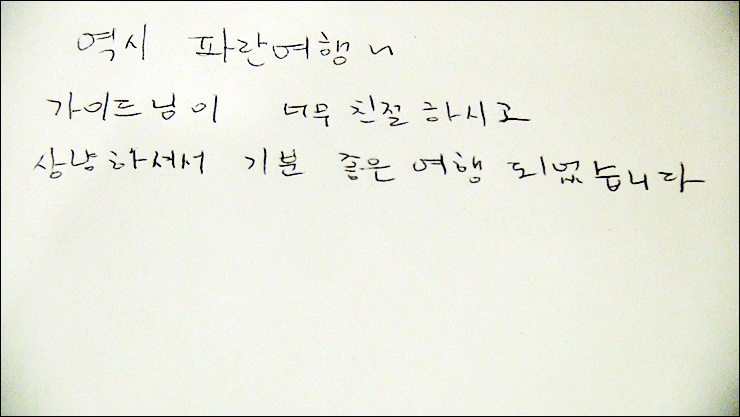 역시 파란여행~
가이드님이 너무 친절하시고
상냥하셔서 기분 좋은 여행 되었습니다